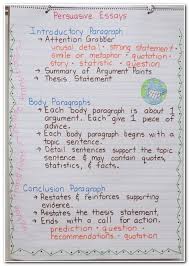 Persuasive Essays
Introductory Paragraph
→ Attention Grabber
unusual detail • strong statement
simile or metaphor • quotation
story • statistic • question
→ Summary of Argument Points
→ Thesis Statement
Body Paragraphs
→ Each body paragraph is about 1
argument. Each give 1 piece of
advice.
→ Each body paragraph begins with a
topic sentence.
→ Detail sentences support the topic
sentence & may contain quotes,
statistics, & facts.
Conclusion Paragraph
→ Restates & reinforces supporting
evidence.
→ Restates the thesis statement.
→ Ends with a call for action.
prediction • question •
recommendations • quotation